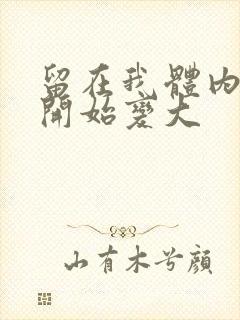 留在我體內
開始變大
山有木兮顏